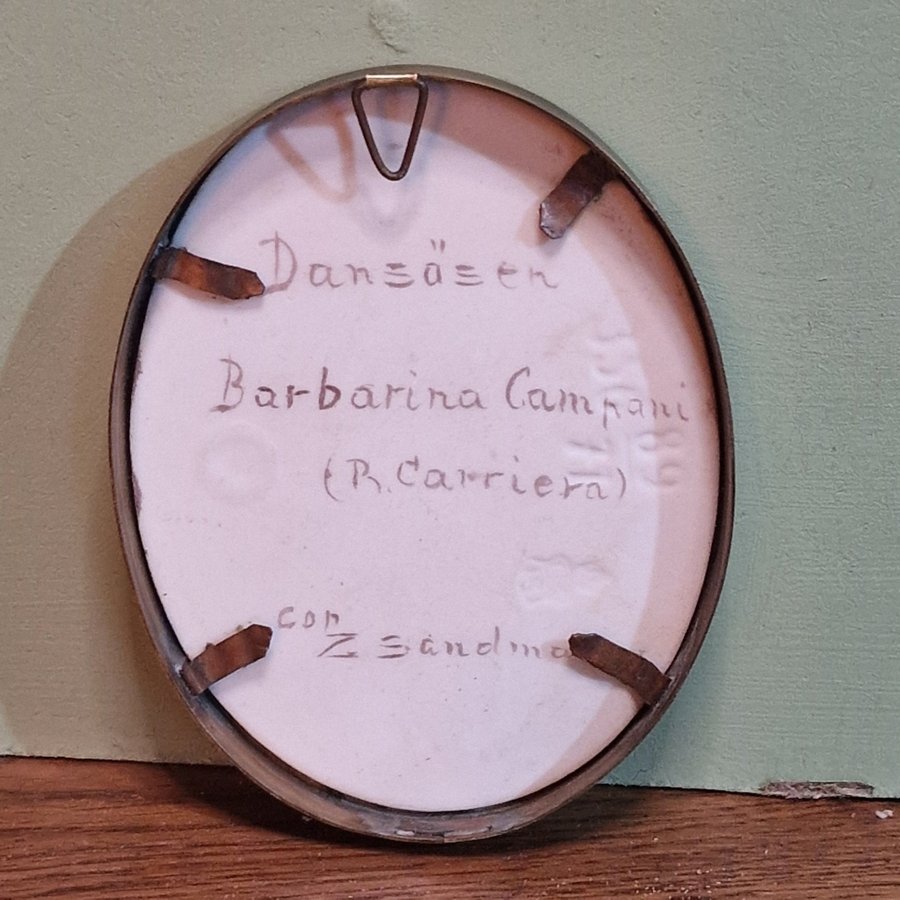 Dansösen
Barbarina Campani
(R. Carriera)
cop
Z Sandma